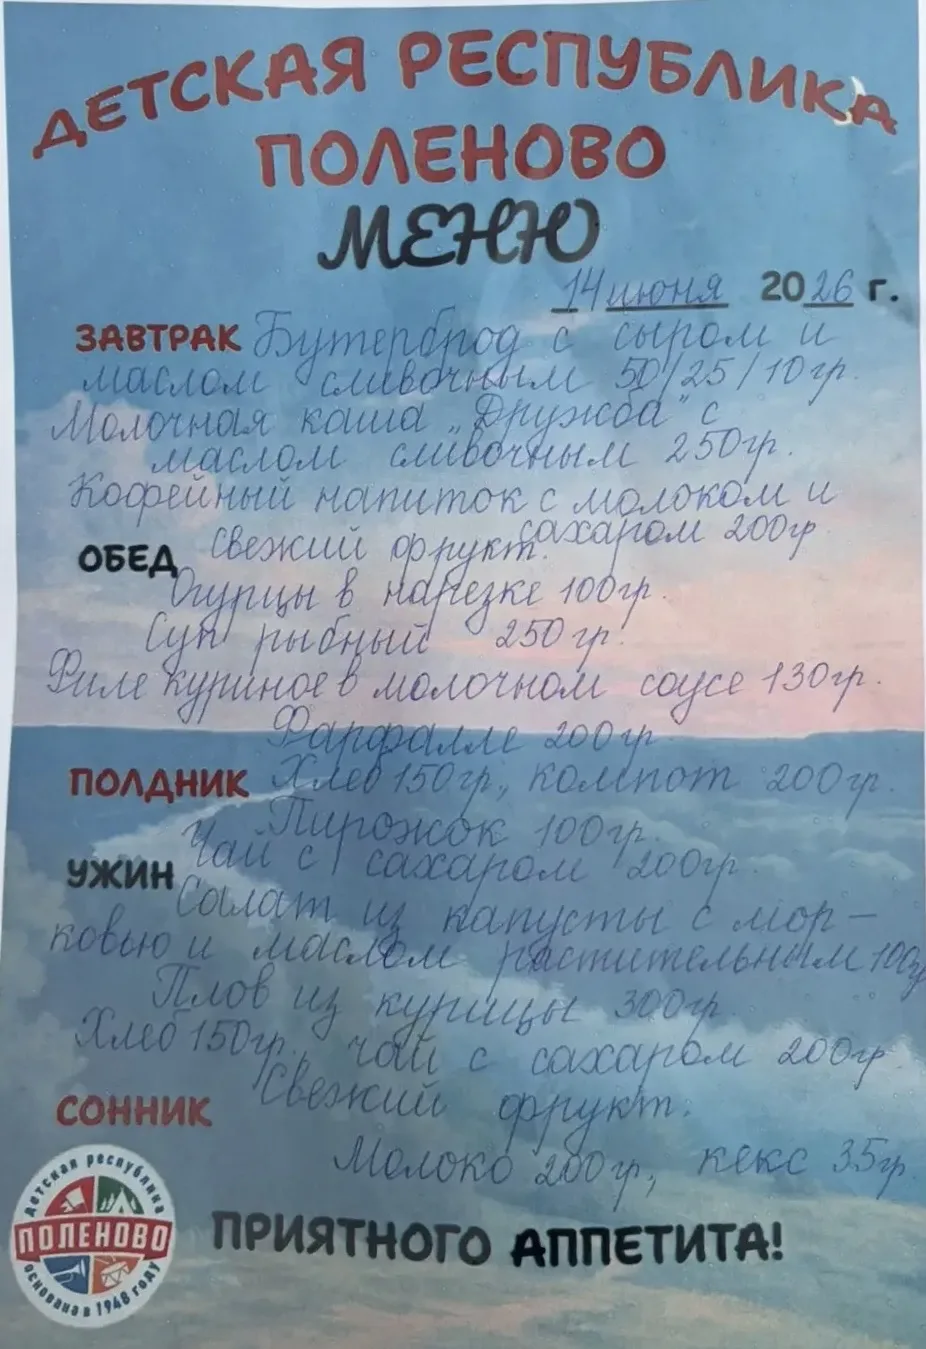 ДЕТСКАЯ РЕСПУБЛИКА
ПОЛЕНОВО
МЕНЮ
14 июня 2026 г.
ЗАВТРАК Бутерброд с сыром и
маслом сливочным 50/25/10гр.
Молочная каша "Дружба" с
маслом сливочным 250гр.
Кофейный напиток с молоком и
сахаром 200гр
Свежий фрукт.
ОБЕД
Огурцы в нарезке 100гр.
Суп рыбный 250гр.
Филе куриное в молочном соусе 130гр.
Фарфалле 200гр
Хлеб 150гр., компот 200гр.
ПОЛДНИК
Пирожок 100гр.
Чай с сахаром 200гр.
УЖИН
Салат из капусты с мор-
ковью и маслом растительным 100гр
Плов из курицы 300гр.
Хлеб 150гр., чай с сахаром 200гр
Свежий фрукт.
СОННИК
Молоко 200гр., кекс 35гр.
ПРИЯТНОГО АППЕТИТА!
детская республика
ПОЛЕНОВО
основана в 1948 году